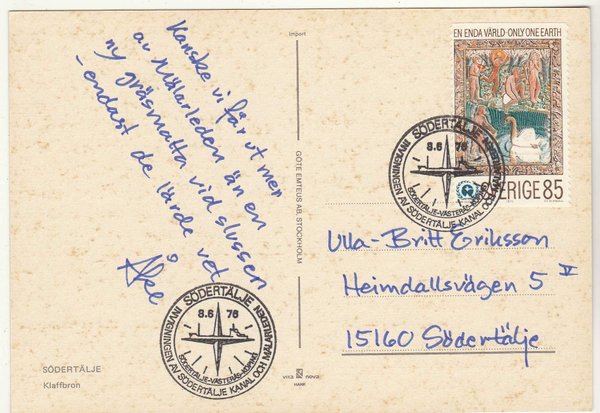 Kanske vi får ut mer
av Mälarleden än en
ny gräsmatta vid slussen
- endast de lärde vet
Import
GÖTE EMTEUS AB, STOCKHOLM
EN ENDA VÄRLD · ONLY ONE EARTH
SVERIGE 85
SÖDERTÄLJE
8.6 76
INVIGNINGEN AV SÖDERTÄLJE KANAL OCH MÄLARLEDEN
SÖDERTÄLJE-VÄSTERÅS-KÖPING
Ulla-Britt Eriksson
Heimdallsvägen 5 V
15160 Södertälje
SÖDERTÄLJE
8.6 76
INVIGNINGEN AV SÖDERTÄLJE KANAL OCH MÄLARLEDEN
SÖDERTÄLJE-VÄSTERÅS-KÖPING
SÖDERTÄLJE
Klaffbron
nova